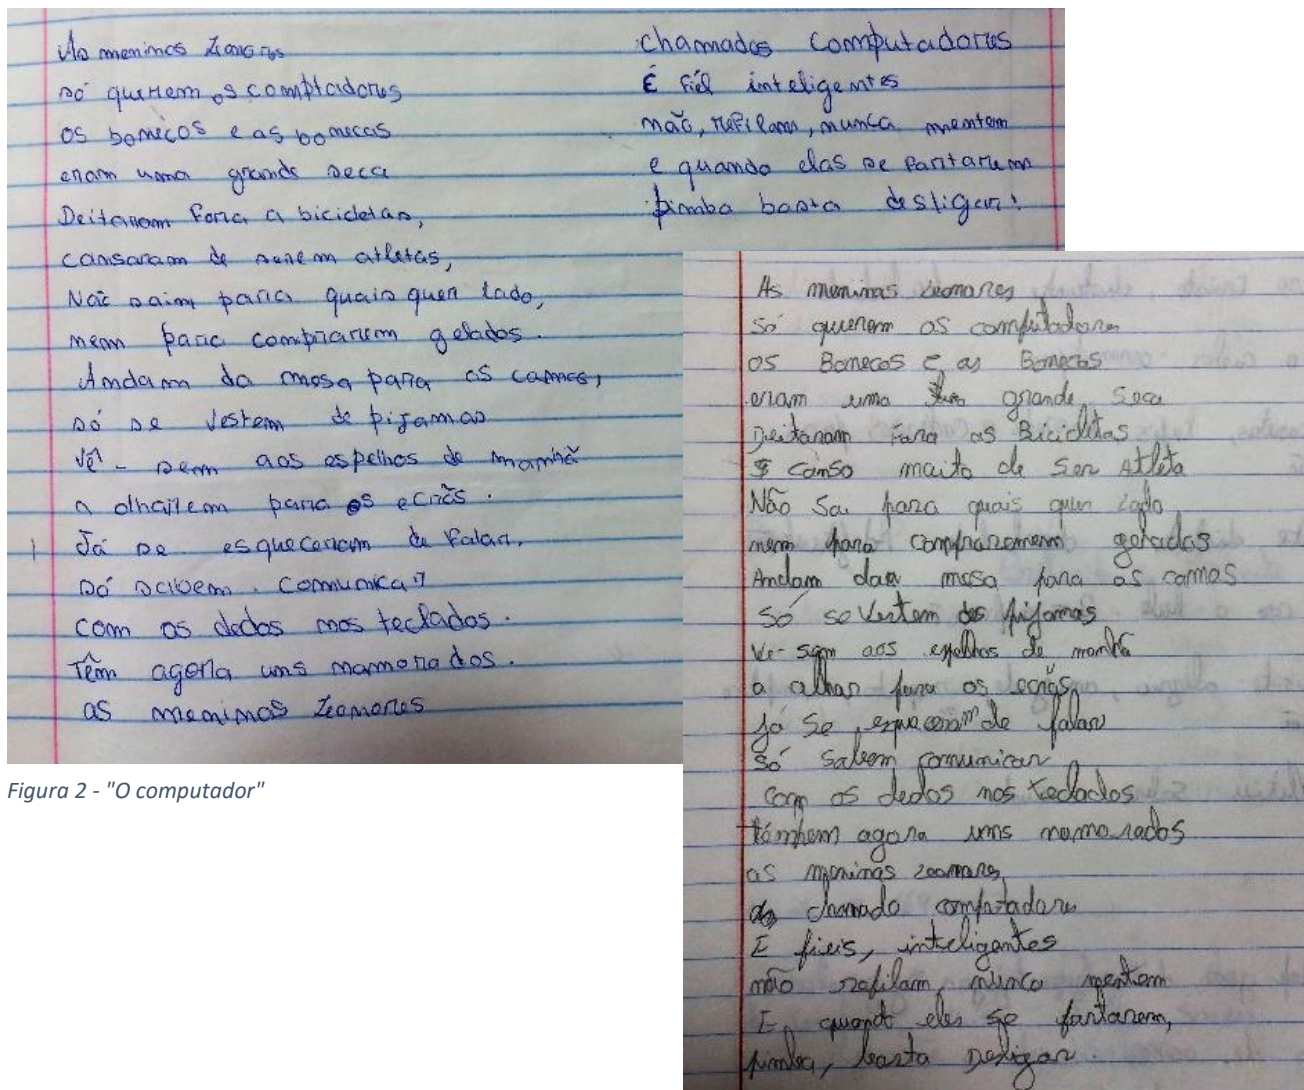 As meninas Leonores
só querem os comptadores
os bonecos e as bonecas
eram uma grande seca
Deitaram fora a bicicletas,
cansaram de serem atletas,
Não saim para quais quer lado,
nem para comprarem gelados.
Andam da mesa para as camas,
só se vestem de pijamas
Vê-sem aos espelhos de manhã
a olharem para os ecrãs.
Já se esqueceram de falar.
só sabem. comunicar
com os dedos nos teclados.
Têm agora uns namorados.
as meninas Leonores
chamados computadores
É fiél inteligentes
não, refilam, nunca mentem
e quando elas se fartarem
pimba basta desligar!
Figura 2 - "O computador"
As meninas
só querem os computadores
os Bonecos e as Bonecas
eram uma grande seca
Deitaram fora as Bicicletas
canso muito de ser Atleta
Não sai para quais quer lado
nem para gelados
Andam mesa para as camas
só se vestem pijamas
Ve-sem aos espelhos de manhã
a olhar para os
já se de falar
só sabem comunicar
com os dedos nos teclados
agora uns namorados
as meninas
chamado
E fieis, inteligentes
não refilam, nunca mentem
E quando eles se fartarem,
pimba, basta